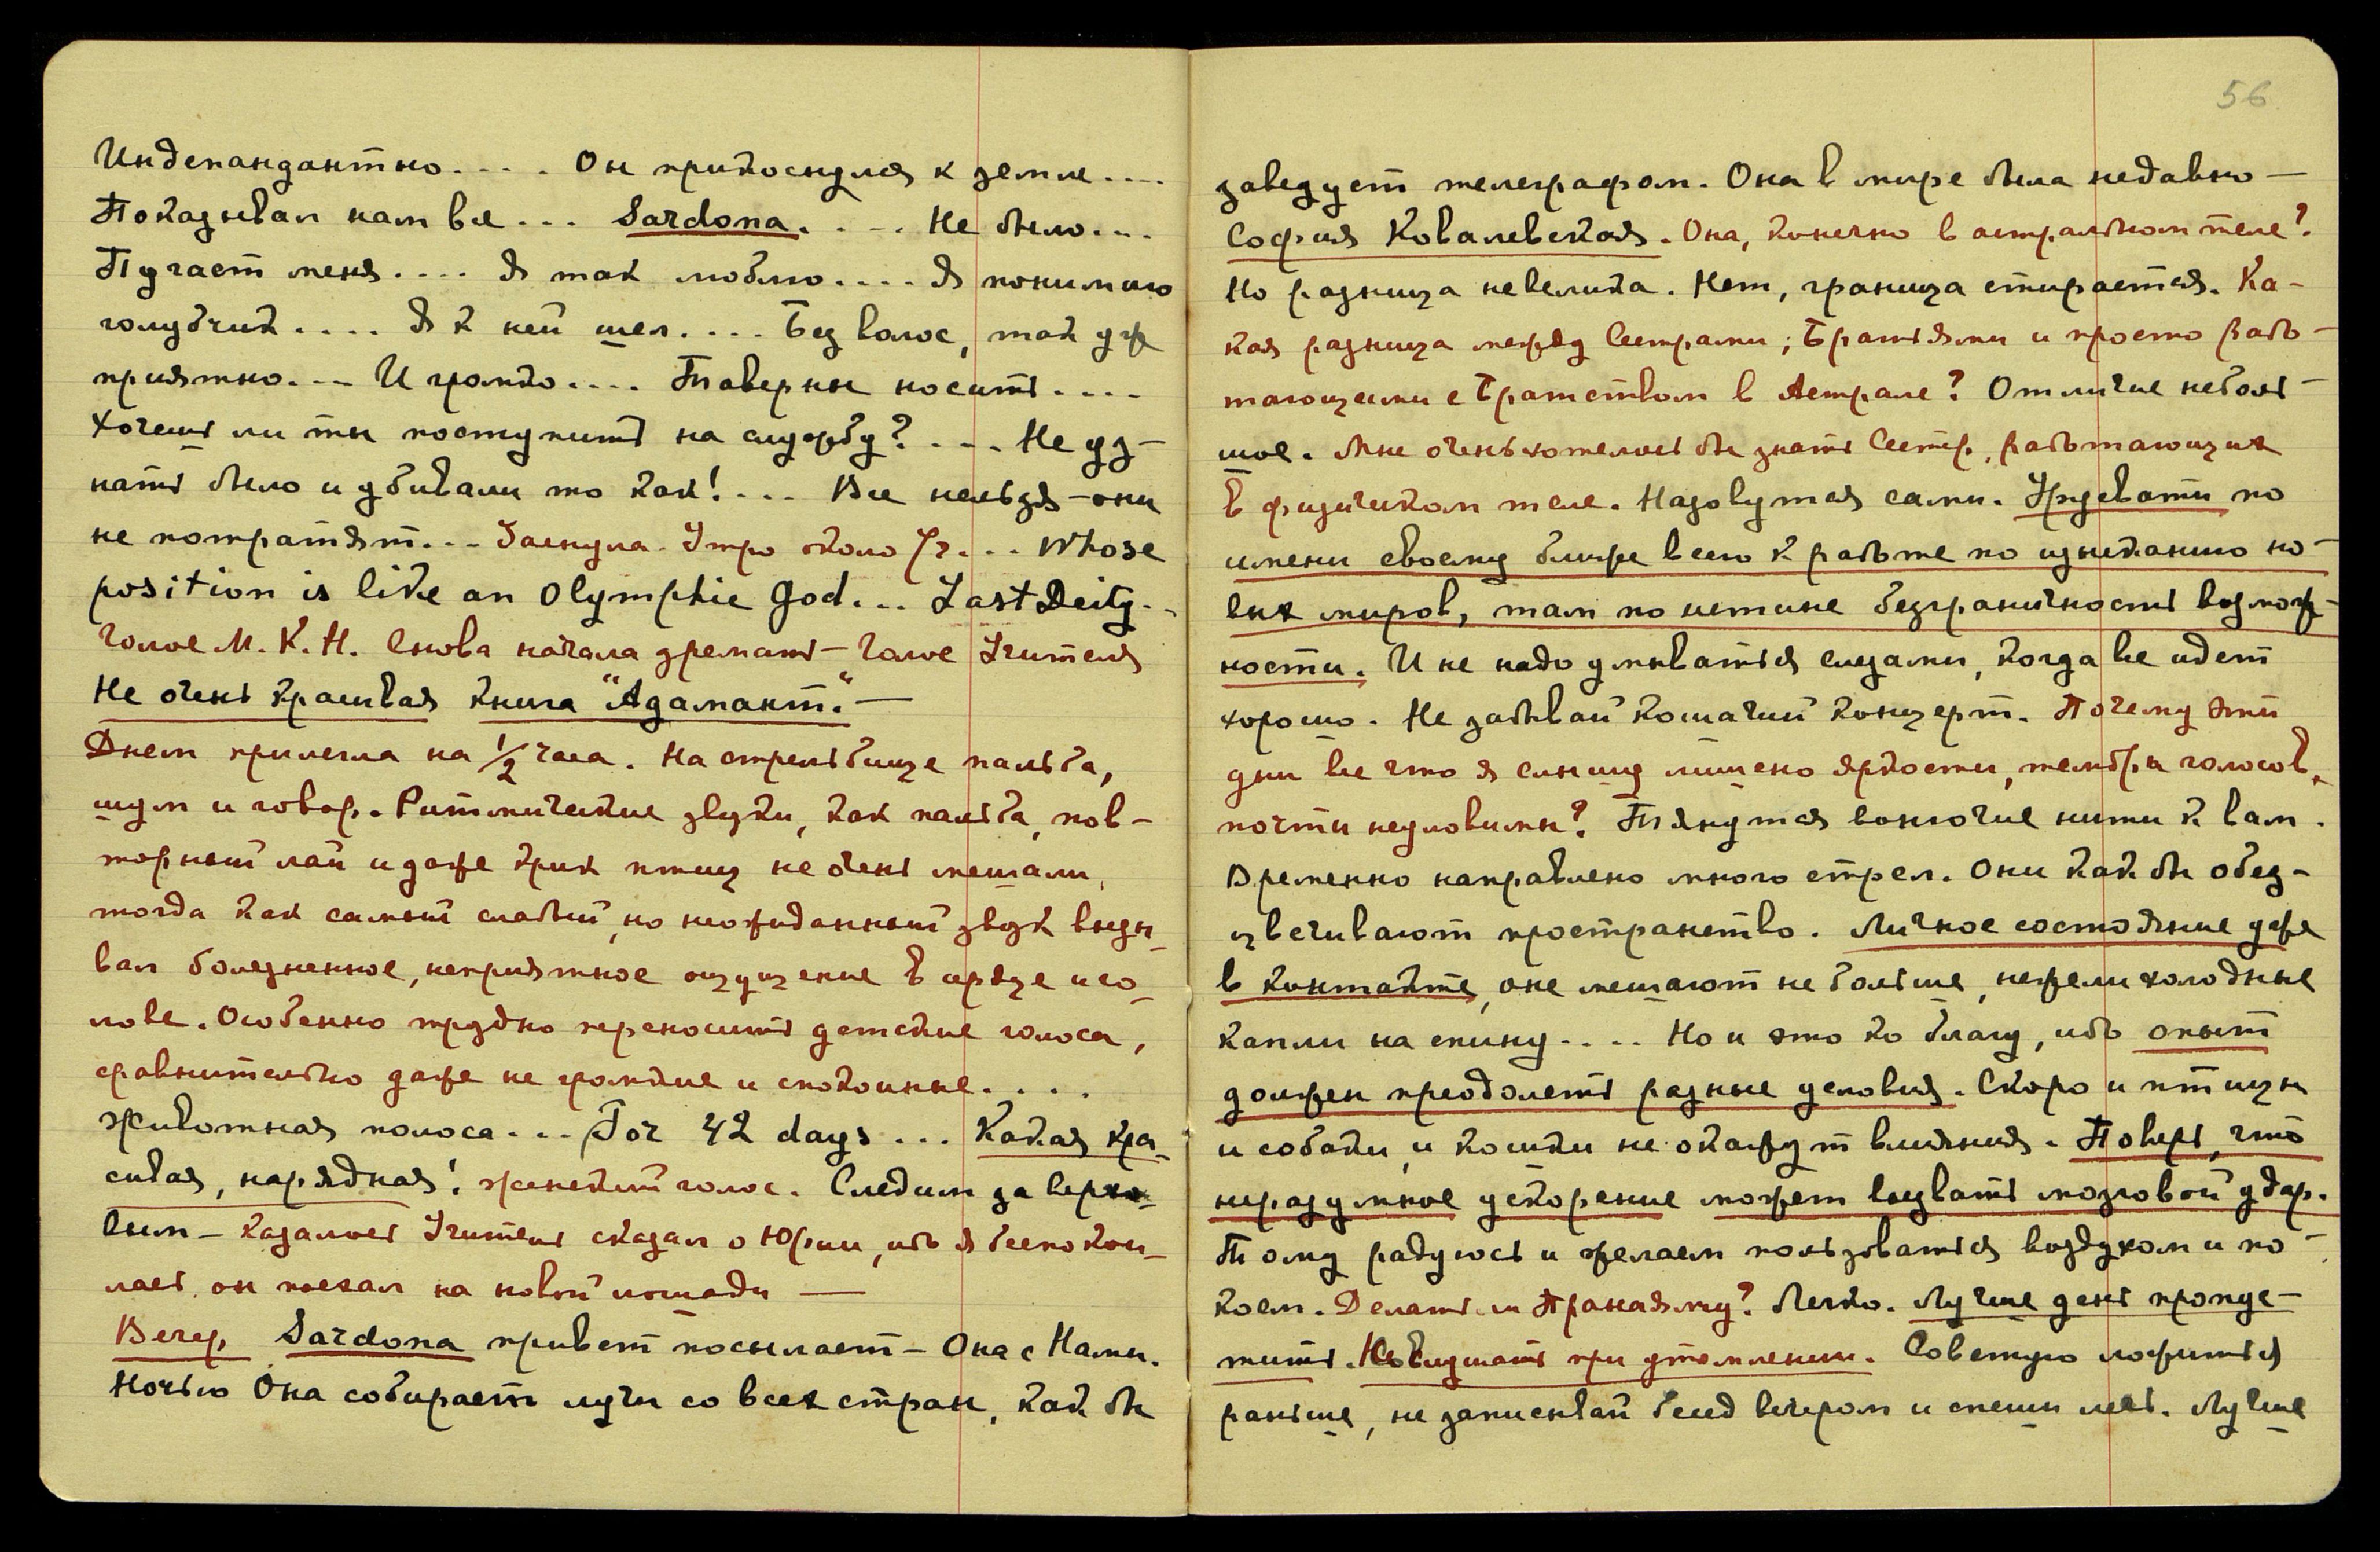 Индепандантно.... Он прикоснулся к земле....
Показывал нам все... Sardona.... Не было...
Пугает меня.... Я так люблю.... Я понимаю
голубчик.... Я к ней шел.... Без волос, так уж
приятно... И громко.... Таверны носить....
Хочешь ли ты поступить на службу?.... Не уз-
нать было и убивали то как!... Все нельзя – они
не потратят... Заснула. Утро около 7ч... Whose
position is like an Olymphic God... Last Deity..
Голос М. К. Н. Снова начала дремать – Голос Учителя
Не очень красивая книга "Адамант." —
Днем прилегла на 1/2 часа. На стрельбище пальба,
шум и говор. Ритмические звуки, как пальба, пов-
торный лай и даже крик птиц не очень мешали,
тогда как самый слабый, но неожиданный звук вызы-
вал болезненное, неприятное ощущение в сердце и го-
лове. Особенно трудно переносить детские голоса,
сравнительно даже не громкие и спокойные....
Животная полоса... For 42 days... Какая кра-
сивая, нарядная! женский голос. Следим за верхо-
вым – казалось Учитель сказал о Юрии, ибо я беспокои-
лась, он поехал на новой лошади —
Вечер, Sardona привет посылает – Она с Нами.
Ночью Она собирает лучи со всех стран, как бы
56
заведует телеграфом. Она в мире была недавно –
София Ковалевская. Она, конечно в астральном теле?
Но разница невелика. Нет, граница стирается. Ка-
кая разница между Сестрами; Братьями и просто рабо-
тающими с Братством в Астрале? Отличие неболь-
шое. Мне очень хотелось бы знать Сестр, работающих
в физическом теле. Назовутся сами. Урусвати по
имени своему ближе всего к работе по изысканию но-
вых миров, там по истине безграничность возмож-
ности. И не надо умываться слезами, когда все идет
хорошо. Не забывай кошачий концерт. Почему эти
дни все что я слышу лишено яркости, тембры голосов,
почти неуловимы? Тянутся вонючие нити к вам.
Временно направлено много стрел. Они как бы обез-
цвечивают пространство. Личное состояние даже
в контакте, оне мешают не больше, нежели холодные
капли на спину.... Но и это ко благу, ибо опыт
должен преодолеть разные условия. Скоро и птицы
и собаки, и кошки не окажут влияния. Поверь, что
неразумное ускорение может вызвать мозговой удар.
Тому радуюсь и желаем пользоваться воздухом и по-
коем. Делать ли Пранаяму? Легко. Лучше день пропус-
тить. Но слушать при утомлении. Советую ложиться
раньше, не записывай бесед вечером и спеши лечь. Лучше